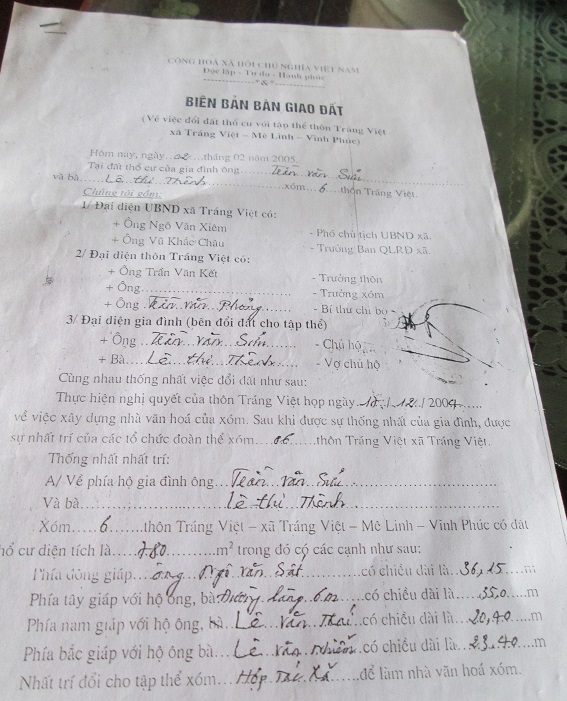 CỘNG HOÀ XÃ HỘI CHỦ NGHĨA VIỆT NAM
Độc lập - Tự do - Hạnh phúc
BIÊN BẢN BÀN GIAO ĐẤT
(Về việc đổi đất thổ cư với tập thể thôn Tráng Việt
xã Tráng Việt – Mê Linh – Vĩnh Phúc)
Hôm nay, ngày 02 tháng 02 năm 2005.
Tại đất thổ cư của gia đình ông Trần Văn Sửu
và bà Lê Thị Thành xóm 6 thôn Tráng Việt.
Chúng tôi gồm:
1/ Đại diện UBND xã Tráng Việt có:
+ Ông Ngô Văn Xiêm - Phó chủ tịch UBND xã.
+ Ông Vũ Khắc Châu - Trưởng Ban QLRĐ xã.
2/ Đại diện thôn Tráng Việt có:
+ Ông Trần Văn Kết - Trưởng thôn
+ Ông - Trưởng xóm
+ Ông Trần Văn Phỏng - Bí thư chi bộ
3/ Đại diện gia đình (bên đổi đất cho tập thể)
+ Ông Trần Văn Sửu - Chủ hộ
+ Bà Lê Thị Thành - Vợ chủ hộ
Cùng nhau thống nhất việc đổi đất như sau:
Thực hiện nghị quyết của thôn Tráng Việt họp ngày / 12 / 2004
về việc xây dựng nhà văn hoá của xóm. Sau khi được sự thống nhất của gia đình, được
sự nhất trí của các tổ chức đoàn thể xóm 06 thôn Tráng Việt xã Tráng Việt.
Thống nhất nhất trí:
A/ Về phía hộ gia đình ông Trần Văn Sửu
Và bà Lê Thị Thành
Xóm 6 thôn Tráng Việt – xã Tráng Việt – Mê Linh – Vĩnh Phúc có đất
thổ cư diện tích là 780 m² trong đó có các cạnh như sau:
Phía đông giáp ông Ngô Văn Sắt có chiều dài là 36,15 m
Phía tây giáp với hộ ông, bà Đường làng 6m có chiều dài là 35,0 m
Phía nam giáp với hộ ông, bà Lê Văn Thái có chiều dài là 20,40 m
Phía bắc giáp với hộ ông bà Lê Văn Nhiễm có chiều dài là 23,40 m
Nhất trí đổi cho tập thể xóm Hợp Tác Xã để làm nhà văn hoá xóm.